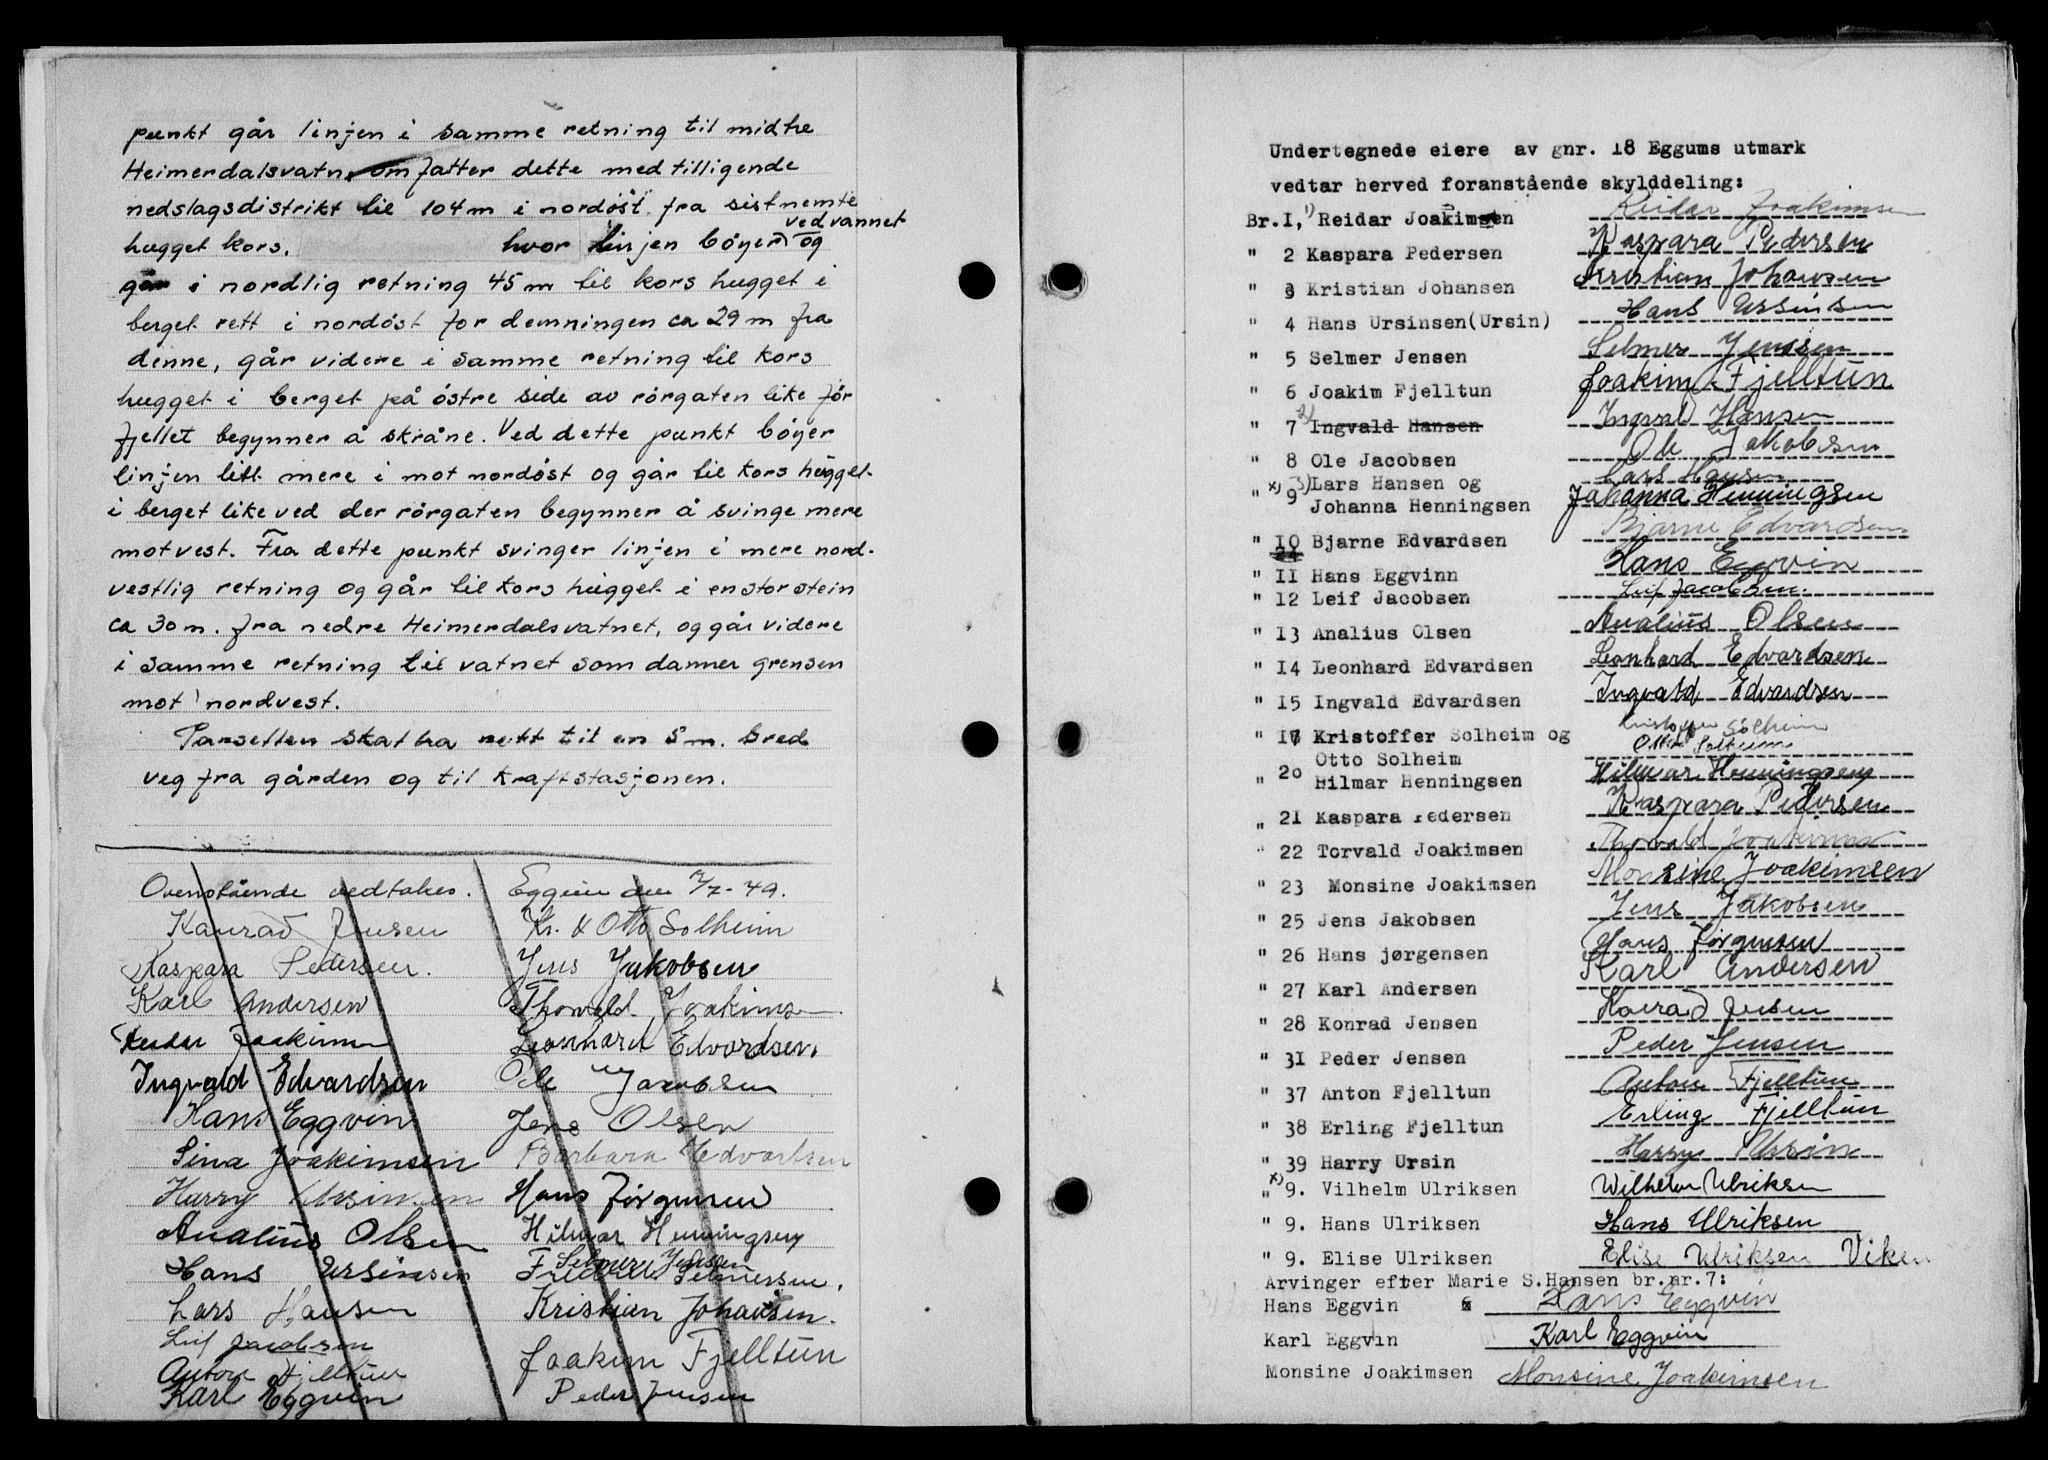 punkt går linjen i samme retning til midtre
Heimerdalsvatn, omfatter dette med tilligende
nedslagsdistrikt til 104 m i nordöst fra sistnemte
ved vannet
hugget kors. hvor linjen böyer og
går i nordlig retning 45 m til kors hugget i
berget rett i nordöst for demningen ca 29 m fra
denne, går videre i samme retning til kors
hugget i berget på östre side av rörgaten like för
fjellet begynner å skråne. Ved dette punkt böyer
linjen litt mere i mot nordöst og går til kors hugget
i berget like ved der rörgaten begynner å svinge mere
mot vest. Fra dette punkt svinger linjen i mere nord-
vestlig retning og går til kors hugget i en stor stein
ca 30 m. fra nedre Heimerdalsvatnet, og går videre
i samme retning til vatnet som danner grensen
mot nordvest.
Parsellen skal ha rett til en 5 m. bred
veg fra gården og til kraftstasjonen.
Ovenstående vedtakes. Eggum den /7-49.
Konrad Jensen Kr. & Otto Solheim
Kaspara Pedersen. Jens Jakobsen
Karl Andersen Thorvald Joakimsen
Reidar Joakimsen Leonhard Edvardsen.
Ingvald Edvardsen Ole Jacobsen
Hans Eggvin Jens Olsen
Sina Joakimsen Barbara Edvartsen
Harry Ursinsen Hans Jörgensen
Analius Olsen Hilmar Henningsen
Selmer Jensen
Hans Ursinsen Fredrik Selmersen.
Lars Hansen Kristian Johansen.
Leif Jacobsen
Anton Fjelltun Joakim Fjelltun
Karl Eggvin Peder Jensen
Undertegnede eiere av gnr. 18 Eggums utmark
vedtar herved foranstående skylddeling:
Br.I, 1) Reidar Joakimsen Reidar Joakimsen
" 2 Kaspara Pedersen Kaspara Pedersen
" 3 Kristian Johansen Kristian Johansen
" 4 Hans Ursinsen(Ursin) Hans Ursinsen
" 5 Selmer Jensen Selmer Jenssen
" 6 Joakim Fjelltun Joakim Fjelltun
" 7 2) Ingvald Hansen Ingvald Hansen
" 8 Ole Jacobsen Ole Jakobsen
" x) 9 3) Lars Hansen og Lars Hansen
Johanna Henningsen Johanna Henningsen
" 10 Bjarne Edvardsen Bjarne Edvardsen
" 11 Hans Eggvinn Hans Eggvin
" 12 Leif Jacobsen Leif Jacobsen.
" 13 Analius Olsen Analius Olsen
" 14 Leonhard Edvardsen Leonhard Edvardsen
" 15 Ingvald Edvardsen Ingvald Edvardsen
" 17 Kristoffer Solheim og Kristoffer Solheim
Otto Solheim Otto Solheim
" 20 Hilmar Henningsen Hilmar Henningsen
" 21 Kaspara Pedersen Kaspara Pedersen
" 22 Torvald Joakimsen Thorvald Joakimsen
" 23 Monsine Joakimsen Monsine Joakimsen
" 25 Jens Jakobsen Jens Jakobsen
" 26 Hans jørgensen Hans Jörgensen
" 27 Karl Andersen Karl Andersen
" 28 Konrad Jensen Konrad Jensen
" 31 Peder Jensen Peder Jensen
" 37 Anton Fjelltun Anton Fjelltun
" 38 Erling Fjelltun Erling Fjelltun
" 39 Harry Ursin Harry Ursin
" x) 9. Vilhelm Ulriksen Wilhelm Ulriksen
" 9. Hans Ulriksen Hans Ulriksen
" 9. Elise Ulriksen Elise Ulriksen Viken
Arvinger efter Marie S.Hansen br.nr.7:
Hans Eggvin Hans Eggvin
Karl Eggvin Karl Eggvin
Monsine Joakimsen Monsine Joakimsen